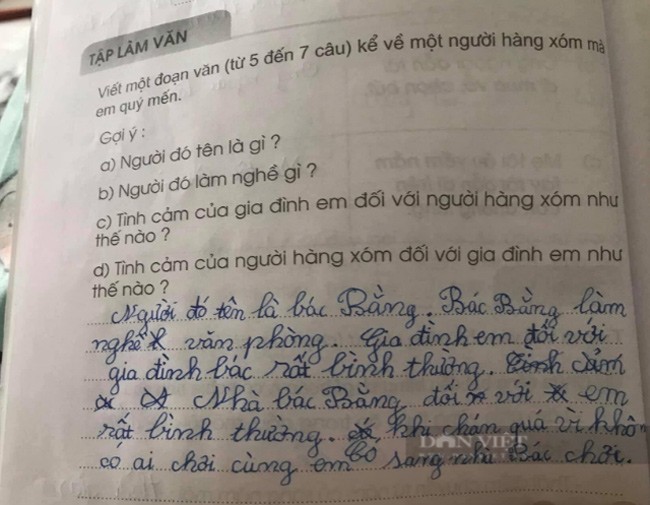 TẬP LÀM VĂN
Viết một đoạn văn (từ 5 đến 7 câu) kể về một người hàng xóm mà
em quý mến.
Gợi ý :
a) Người đó tên là gì ?
b) Người đó làm nghề gì ?
c) Tình cảm của gia đình em đối với người hàng xóm như
thế nào ?
d) Tình cảm của người hàng xóm đối với gia đình em như
thế nào ?
Người đó tên là bác Bằng. Bác Bằng làm
nghề văn phòng. Gia đình em đối với
gia đình bác rất bình thường. Tình cảm
Nhà bác Bằng đối với em
rất bình thường. khi chán quá vì khôn
có ai chơi cùng em sang nhà Bác chơi.
DÂN VIỆT